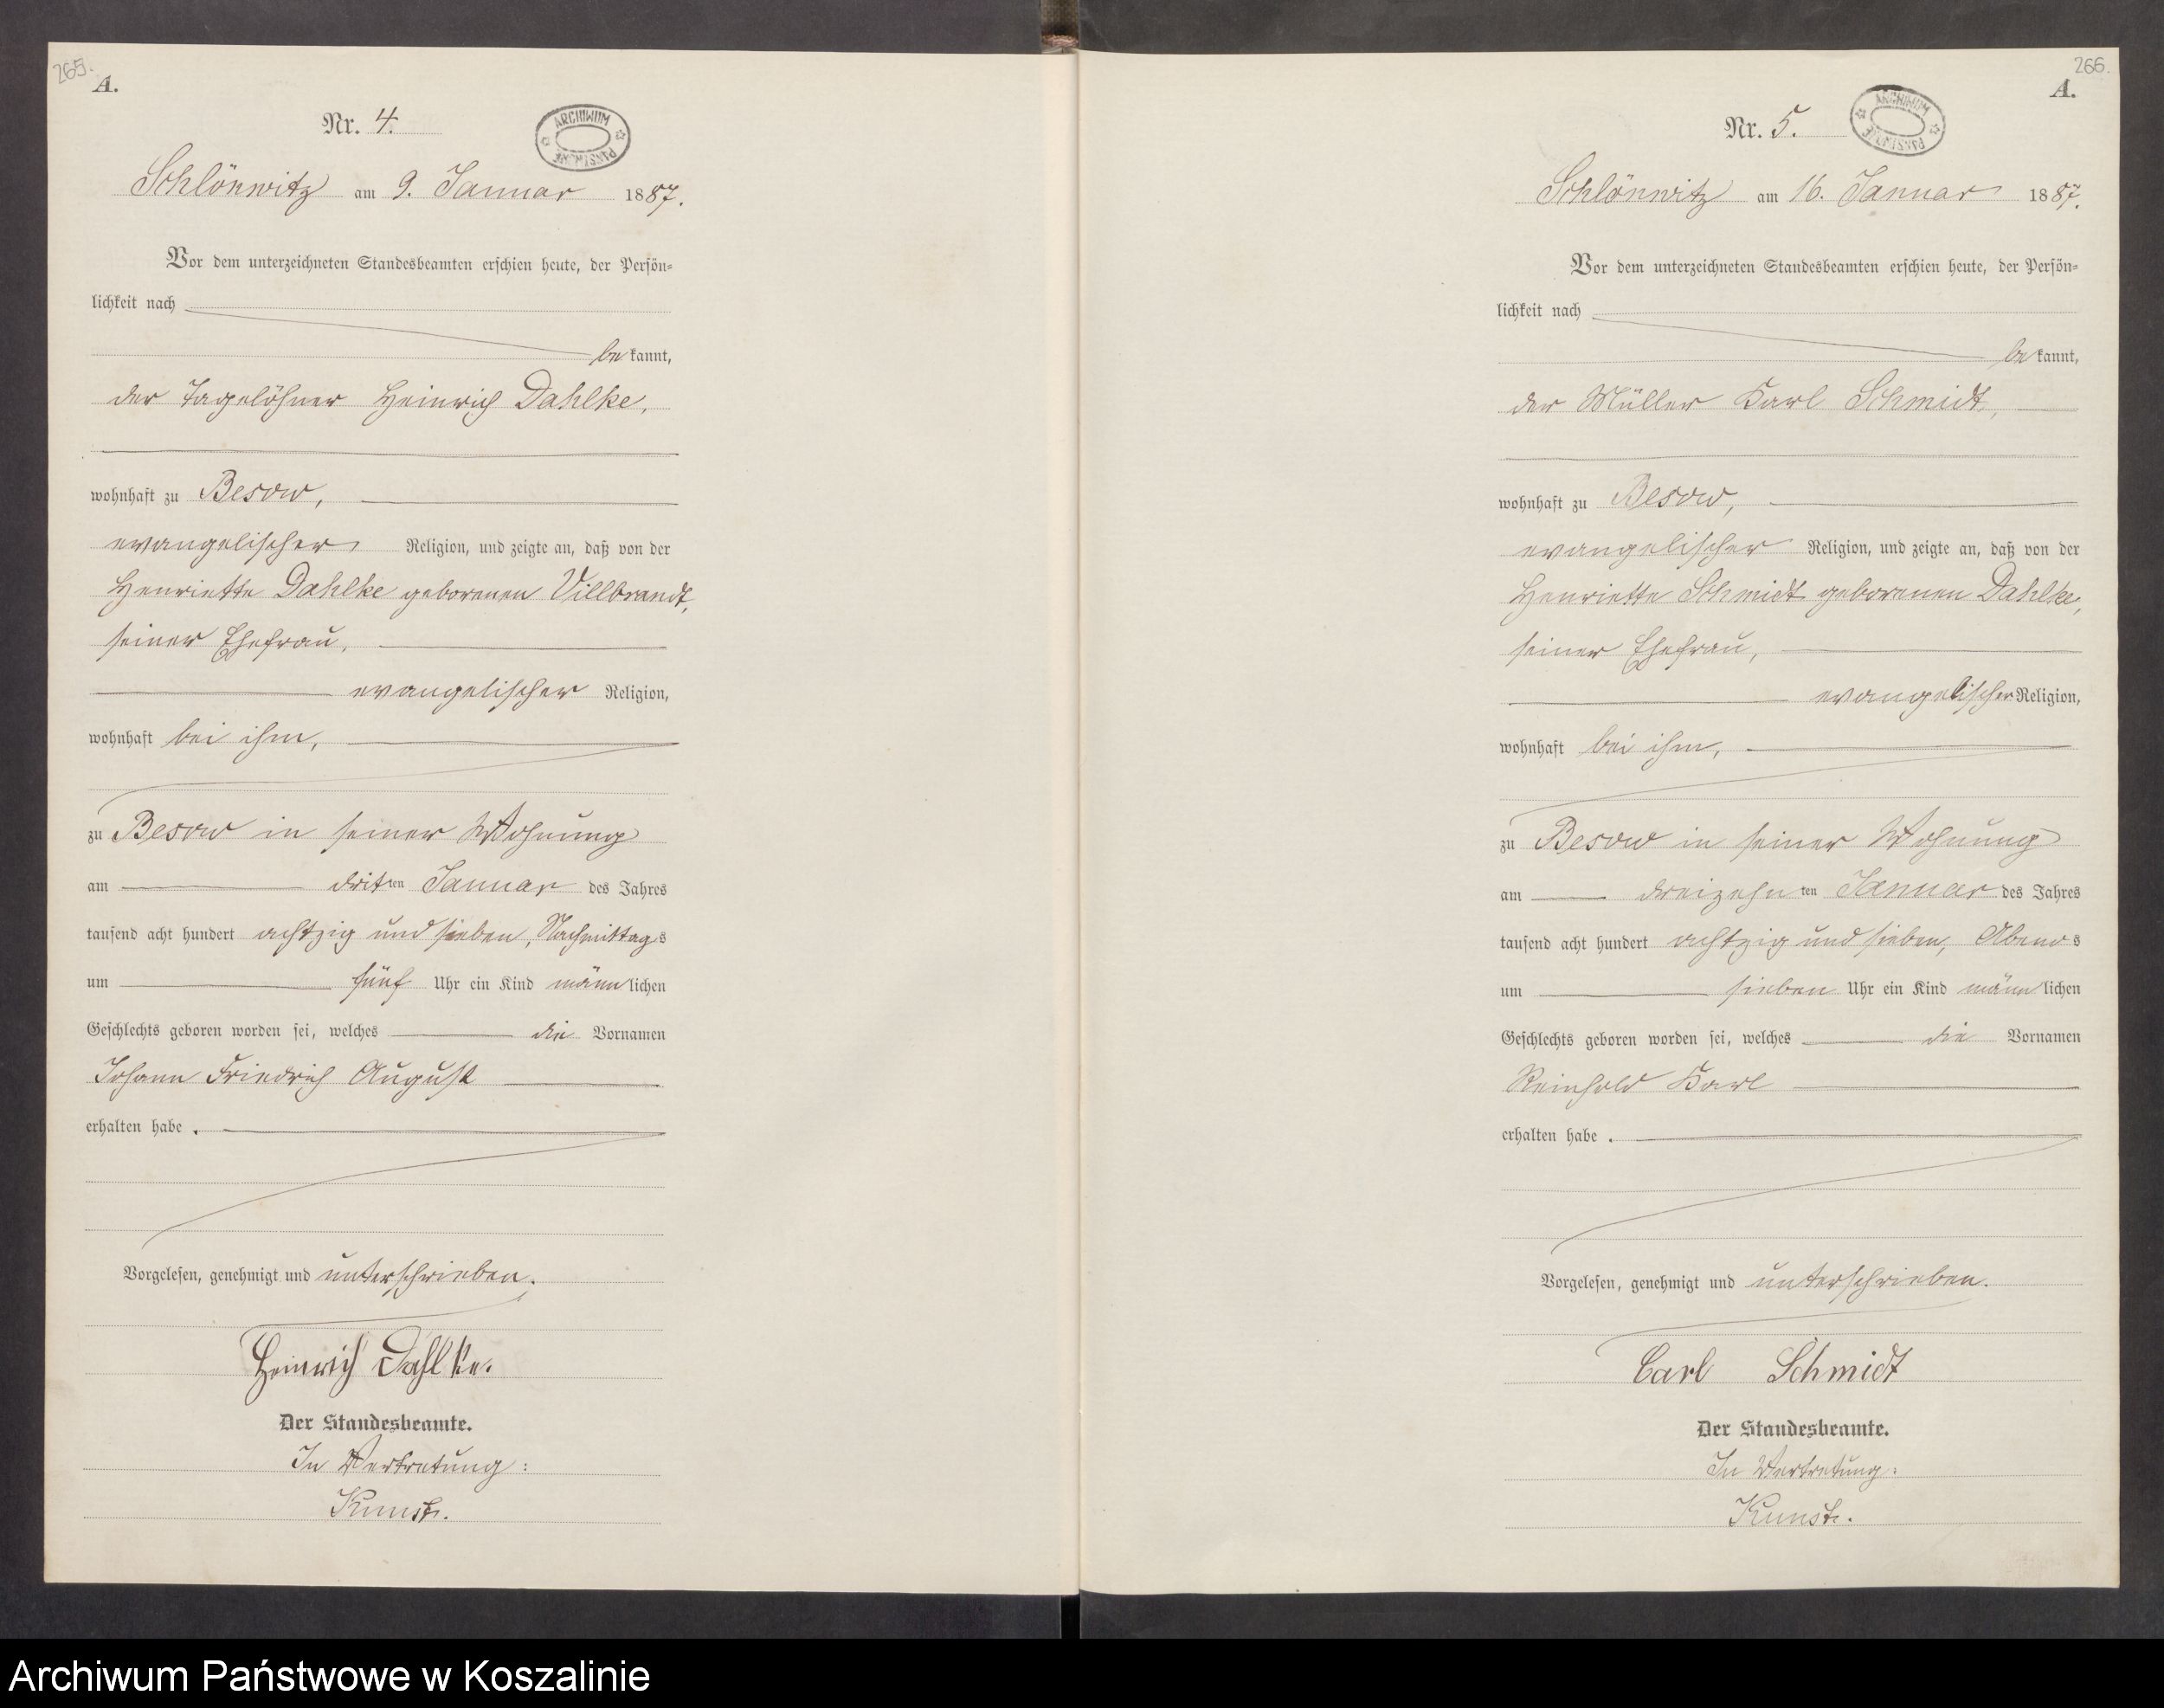 265.
A.
Nr. 4.
ARCHIWUM PAŃSTWOWE
Schlönwitz am 9. Januar 1887.
Vor dem unterzeichneten Standesbeamten erschien heute, der Persön-
lichkeit nach
be kannt,
der Tagelöhner Heinrich Dahlke,
wohnhaft zu Besow,
evangelischer Religion, und zeigte an, daß von der
Henriette Dahlke geborenen Villbrandt,
seiner Ehefrau,
evangelischer Religion,
wohnhaft bei ihm,
zu Besow in seiner Wohnung
am dritten Januar des Jahres
tausend acht hundert achtzig und sieben, Nachmittags
um fünf Uhr ein Kind männlichen
Geschlechts geboren worden sei, welches die Vornamen
Johann Friedrich August
erhalten habe.
Vorgelesen, genehmigt und unterschrieben.
Heinrich Dahlke.
Der Standesbeamte.
In Vertretung:
Kunst.
266.
A.
Nr. 5.
ARCHIWUM PAŃSTWOWE
Schlönwitz am 16. Januar 1887.
Vor dem unterzeichneten Standesbeamten erschien heute, der Persön-
lichkeit nach
be kannt,
der Müller Karl Schmidt,
wohnhaft zu Besow,
evangelischer Religion, und zeigte an, daß von der
Henriette Schmidt geborenen Dahlke,
seiner Ehefrau,
evangelischer Religion,
wohnhaft bei ihm,
zu Besow in seiner Wohnung
am dreizehnten Januar des Jahres
tausend acht hundert achtzig und sieben, Abends
um sieben Uhr ein Kind männlichen
Geschlechts geboren worden sei, welches die Vornamen
Reinhold Karl
erhalten habe.
Vorgelesen, genehmigt und unterschrieben.
Carl Schmidt
Der Standesbeamte.
In Vertretung:
Kunst.
Archiwum Państwowe w Koszalinie